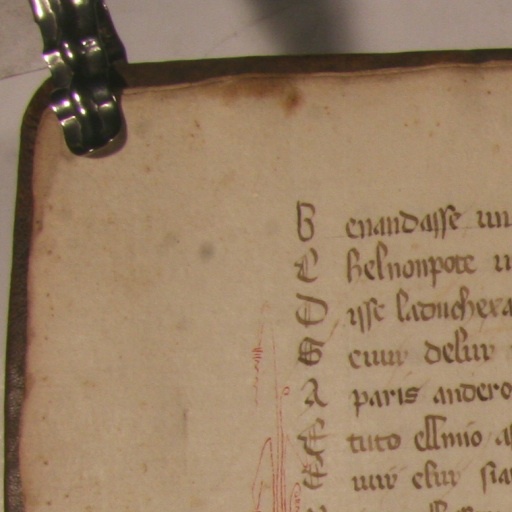 B enandasse un
C helnonpote u
D isse laduchexa
S eiuir delur
A paris andero
E tuto ellmio a
E uir clur sia